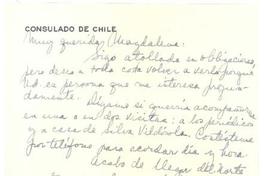 CONSULADO DE CHILE
Muy querida Magdalena:
Sigo atollada en obligaciones,
pero deseo a toda costa volver a verla porque
Ud. es persona que me interesa profun-
damente. Dígame si querría acompañarme
en una o en dos visitas: a los periódicos
y a casa de Silva Vildósola. Contésteme
por teléfono para acordar día y hora
Acabo de llegar del norte